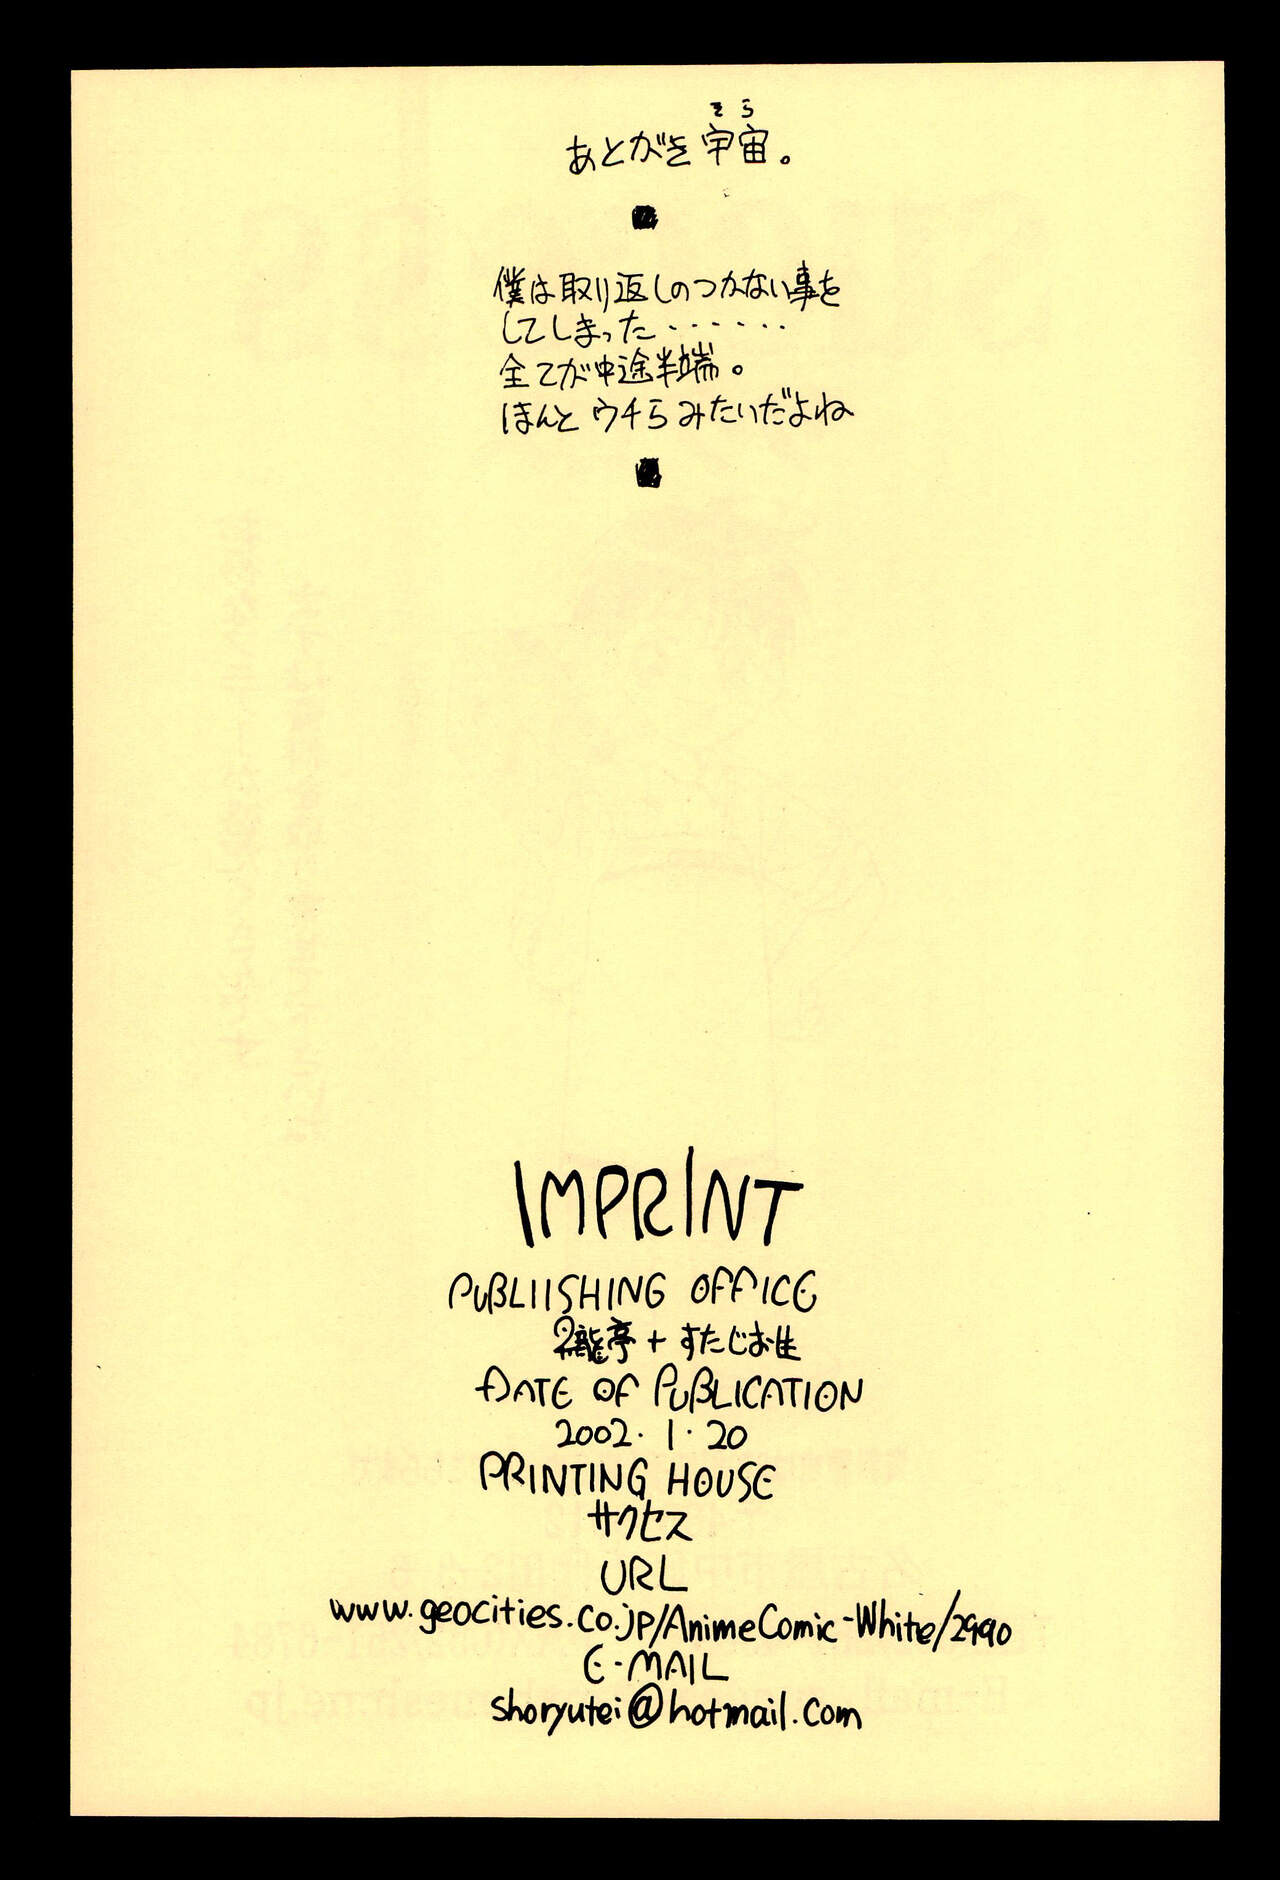 あとがき宇宙。
そら
■
僕は取り返しのつかない事を
してしまった・・・・・・
全てが中途半端。
ほんと ウチら みたいだよね
■
IMPRINT
PUBLIISHING OFFICE
龍亭+すたじお生
DATE OF PUBLICATION
2002.1.20
PRINTING HOUSE
サクセス
URL
www.geocities.co.jp/AnimeComic-White/2990
E-MAIL
shoryutei@hotmail.com